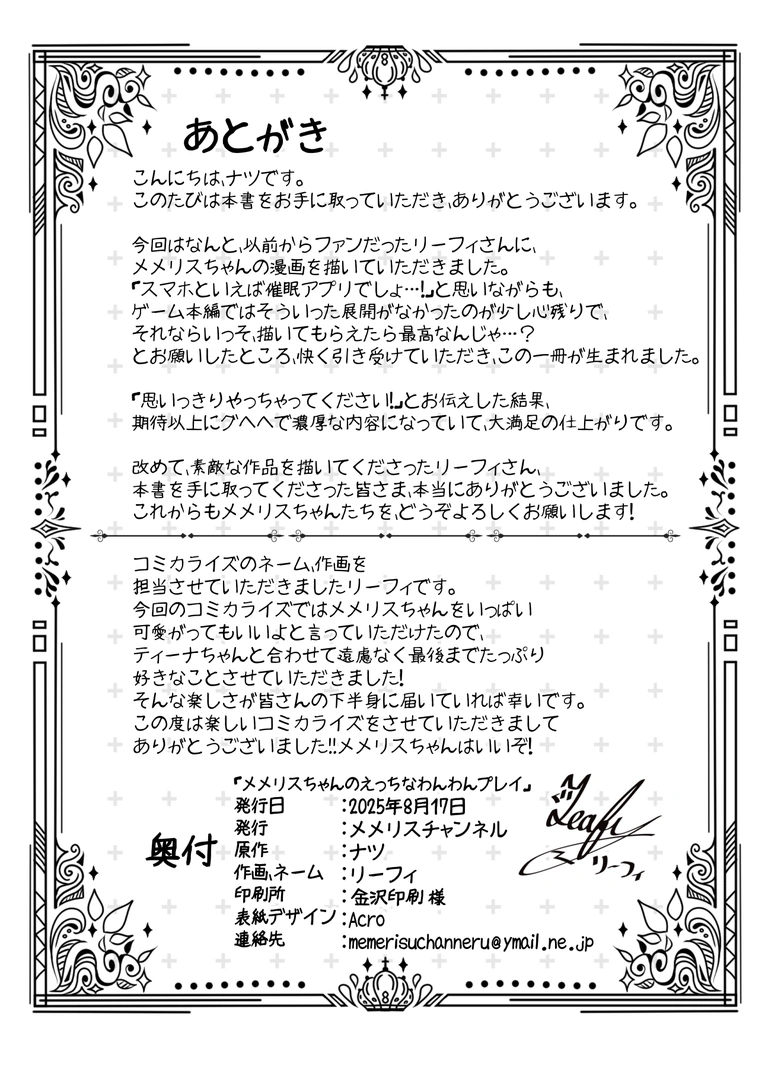 あとがき
こんにちは、ナツです。
このたびは本書をお手に取っていただき、ありがとうございます。
今回はなんと、以前からファンだったリーフィさんに、
メメリスちゃんの漫画を描いていただきました。
『スマホといえば催眠アプリでしょ…!』と思いながらも、
ゲーム本編ではそういった展開がなかったのが少し心残りで、
それならいっそ、描いてもらえたら最高なんじゃ…？
とお願いしたところ、快く引き受けていただき、この一冊が生まれました。
『思いっきりやっちゃってください!』とお伝えした結果、
期待以上にグヘヘで濃厚な内容になっていて、大満足の仕上がりです。
改めて、素敵な作品を描いてくださったリーフィさん、
本書を手に取ってくださった皆さま、本当にありがとうございました。
これからもメメリスちゃんたちを、どうぞよろしくお願いします!
コミカライズのネーム、作画を
担当させていただきましたリーフィです。
今回のコミカライズではメメリスちゃんをいっぱい
可愛がってもいいよと言っていただけたので、
ティーナちゃんと合わせて遠慮なく最後までたっぷり
好きなことさせていただきました!
そんな楽しさが皆さんの下半身に届いていれば幸いです。
この度は楽しいコミカライズをさせていただきまして
ありがとうございました!!メメリスちゃんはいいぞ!
『メメリスちゃんのえっちなわんわんプレイ』
奥付
発行日 :2025年8月17日
発行 :メメリスチャンネル
原作 :ナツ
作画、ネーム :リーフィ
印刷所 :金沢印刷 様
表紙デザイン :Acro
連絡先 :memerisuchanneru@ymail.ne.jp
Leafy
リーフィ